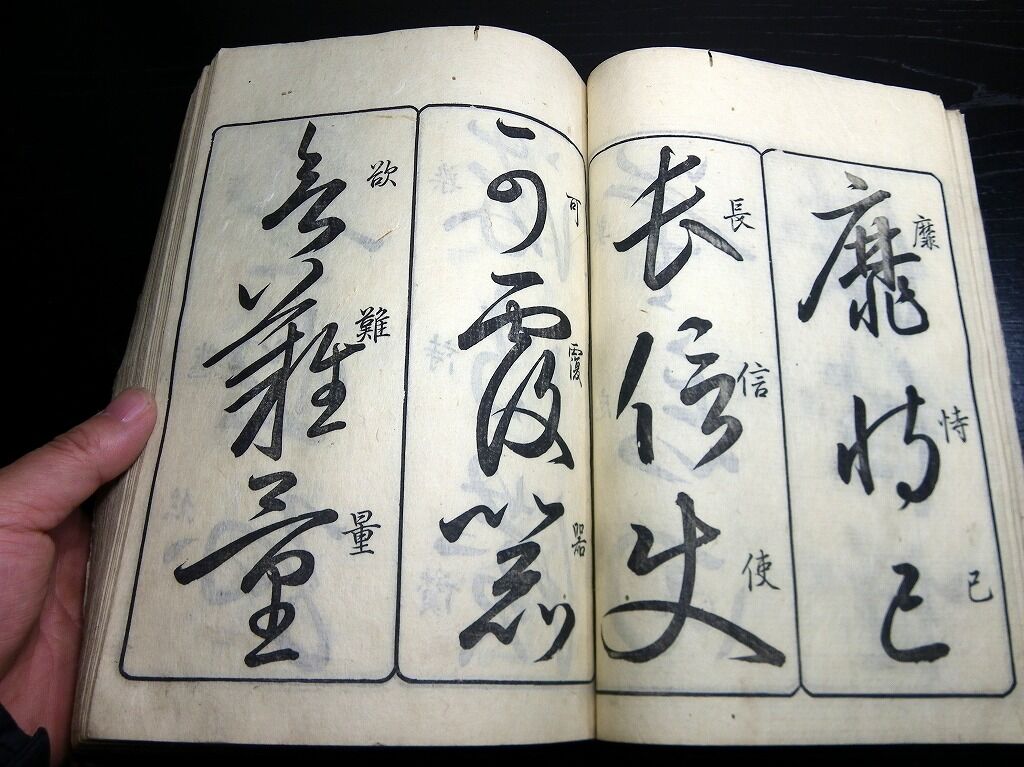 靡恃己
靡恃己
長信使
長信使
可覆器
可覆器
欲難量
欲難量